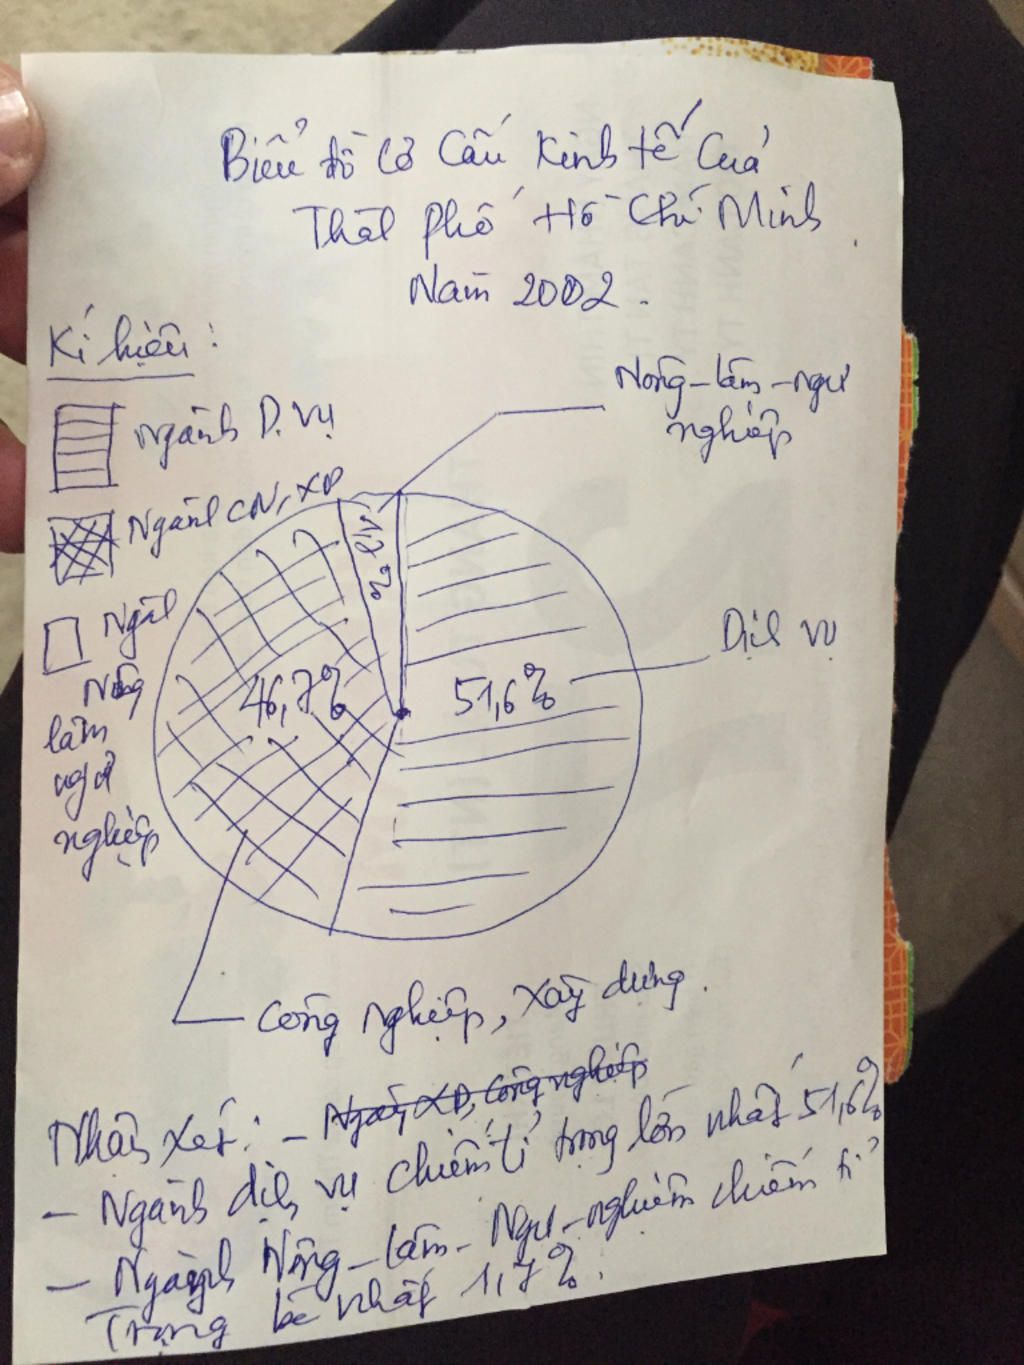 Biểu đồ Cơ Cấu Kinh tế Của
Thàl phố Hồ Chí Minh
Năm 2002.
Kí hiệu:
Ngành D. Vụ
Ngành CN, XD
Ngàl
Nông
lâm
ngư
nghiệp
Nông-lâm-ngư
nghiệp
1,7%
46,7%
51,6%
Dịch vụ
Công nghiệp, Xây dựng.
Nhận xét: - Ngành XD, Công nghiệp
- Ngành dịch vụ chiếm tỉ trọng lớn nhất 51,6%
- Ngành Nông-lâm-Ngư-nghiệm chiếm tỉ
Trọng bé nhất 1,7%.